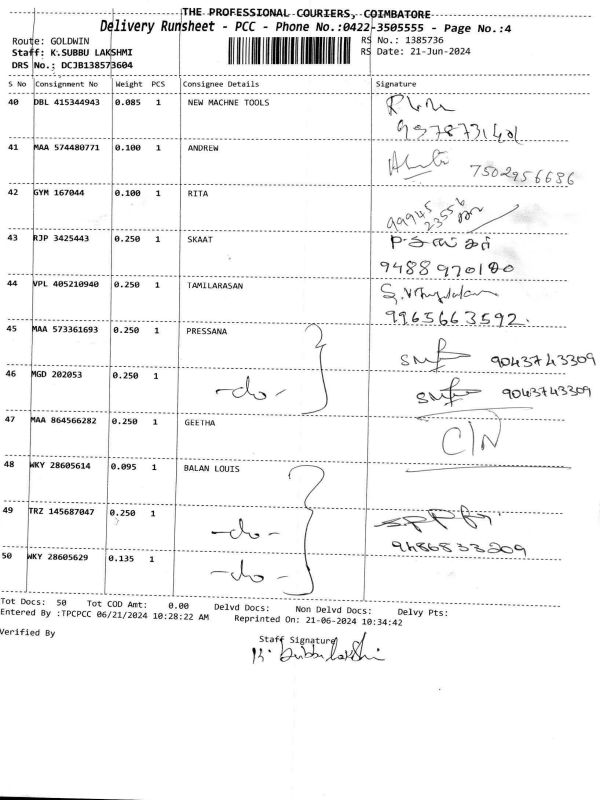 THE PROFESSIONAL COURIERS, COIMBATORE
Delivery Runsheet - PCC - Phone No.:0422-3505555 - Page No.:4
Route: GOLDWIN RS No.: 1385736
Staff: K.SUBBU LAKSHMI RS Date: 21-Jun-2024
DRS No.: DCJB138573604
S No Consignment No Weight PCS Consignee Details Signature
40 DBL 415344943 0.085 1 NEW MACHNE TOOLS
41 MAA 574480771 0.100 1 ANDREW 7502956686
42 GYM 167044 0.100 1 RITA 99945
23556
43 RJP 3425443 0.250 1 SKAAT
9488970100
44 VPL 405210940 0.250 1 TAMILARASAN
9965663592.
45 MAA 573361693 0.250 1 PRESSANA 9043743309
46 MGD 202053 0.250 1 -do- 9043743309
47 MAA 864566282 0.250 1 GEETHA C/N
48 WKY 28605614 0.095 1 BALAN LOUIS
49 TRZ 145687047 0.250 1 -do-
9486833209
50 WKY 28605629 0.135 1 -do-
Tot Docs: 50 Tot COD Amt: 0.00 Delvd Docs: Non Delvd Docs: Delvy Pts:
Entered By :TPCPCC 06/21/2024 10:28:22 AM Reprinted On: 21-06-2024 10:34:42
Verified By Staff Signature
K. Subbulakshi